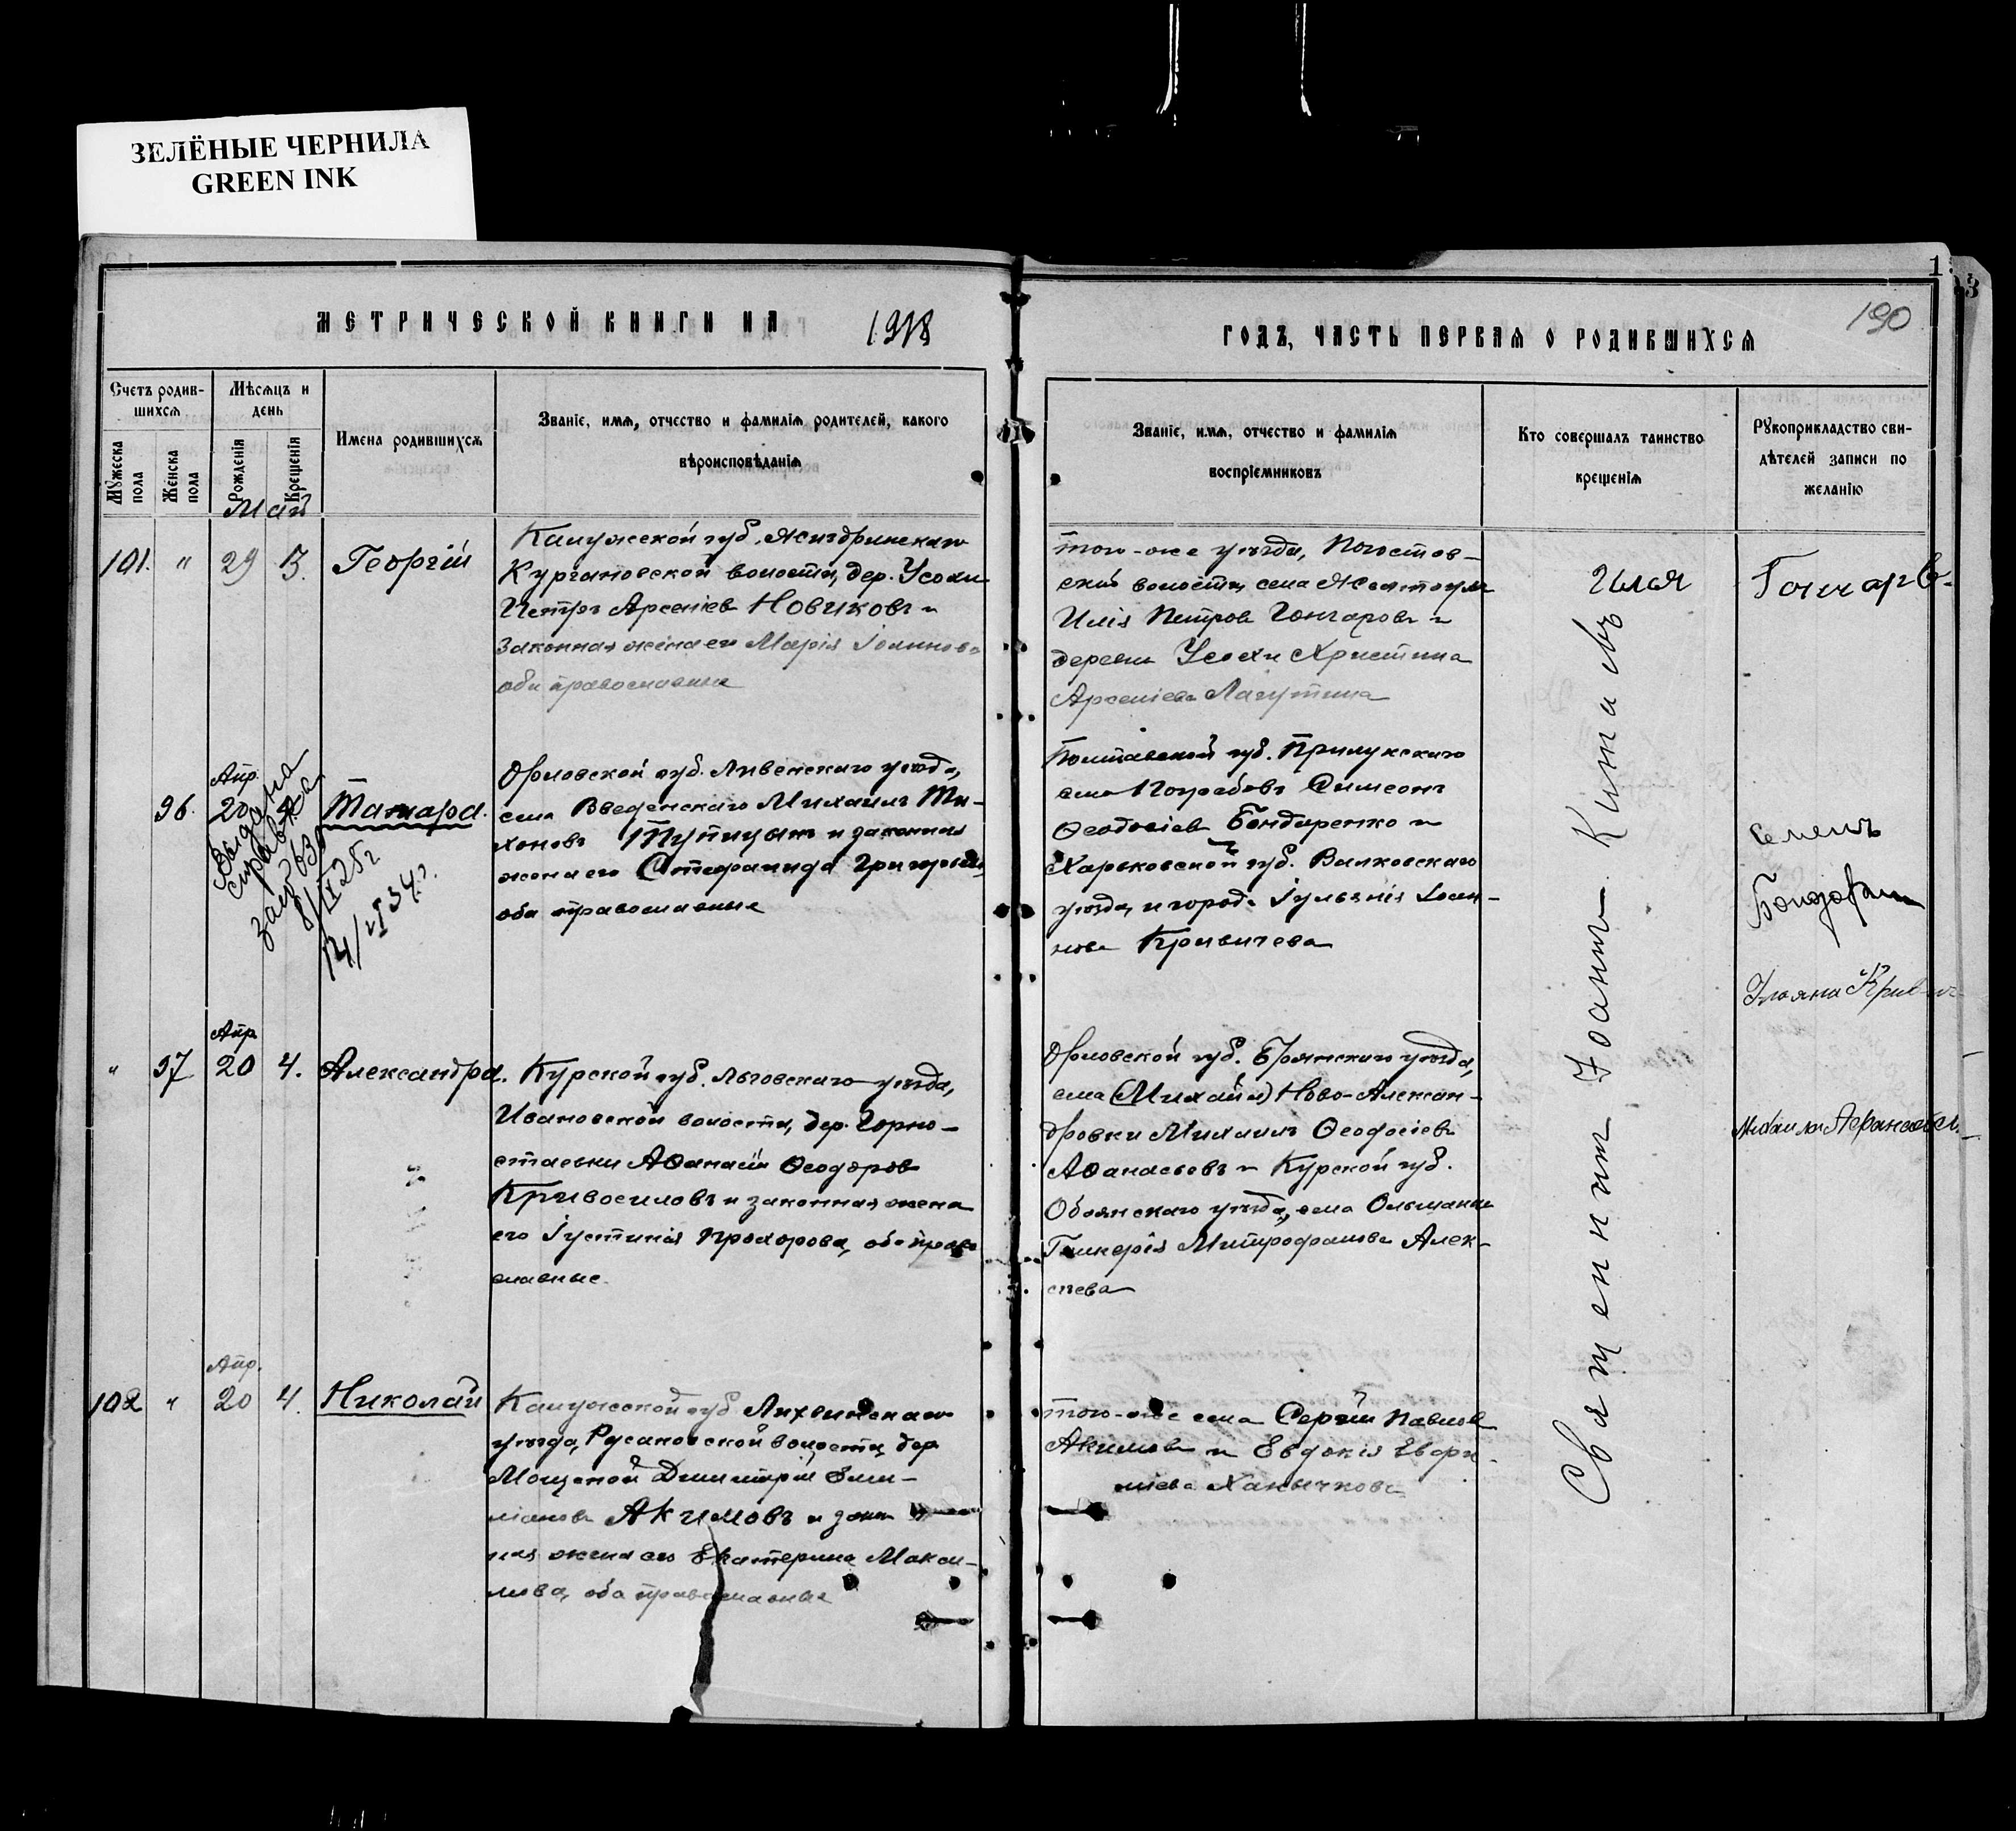 ЗЕЛЁНЫЕ ЧЕРНИЛА
GREEN INK
МЕТРИЧЕСКОЙ КНИГИ НА 1918
ГОДЪ, ЧАСТЬ ПЕРВАЯ О РОДИВШИХСЯ
190
Счетъ родив-
шихся
Мужеска
пола
Женска
пола
Мѣсяцъ и
день
Рожденія
Крещенія
Имена родившихся
Званіе, имя, отчество и фамилія родителей, какого
вѣроисповѣданія
Званіе, имя, отчество и фамилія
воспріемниковъ
Кто совершалъ таинство
крещенія
Рукоприкладство сви-
дѣтелей записи по
желанію
Май
101. " 29 3. Георгій
Калужской губ. Жиздринскаго
Кургановской волости, дер. Усохи
Петръ Арсеніев Новиковъ и
законная жена его Марія Іоаннова
оба православные
того-же уѣзда,
волости, села
Илія Петров Гончаровъ и
деревни Усохи Христина
Арсеніева Лагутина
Илья
Гончаров
Апр.
96. 20 4 Тамара.
Выдана
справка
за № 639
8/IX 25 г
14/VI 34 г.
Орловской губ. Ливенскаго уѣзда,
села Введенскаго Михаилъ Ти-
хоновъ Тупицынъ и законная
жена его Стефанида Григорьева
оба православные
Полтавской губ. Прилукскаго
села Погребовъ Симеонъ
Ѳеодосіев Бондаренко и
Харьковской губ. Валковскаго
уѣзда, и города Іульянія Іоан-
нова Кривичева
Семенъ
Бондарен
Ульяна
Апр
" 97 20 4. Александра.
Курской губ. Льговскаго уѣзда,
Ивановской волости, дер. Горно-
стаевки Аѳанасій Ѳеодоров
Кривосиловъ и законная жена
его Іустинія Прохорова, оба право
славные.
Орловской губ. Брянскаго уѣзда,
села (Михайл) Ново-Алексан-
дровки Михаилъ Ѳеодосіевъ
Аѳанасьевъ и Курской губ.
Обоянскаго уѣзда, села Ольшанки
Гликерія Митрофанова Алек-
сѣева
Михаил
Апр.
102 " 20 4. Николай
Калужской губ Лихвинскаго
уѣзда, Русановской волости, дер
Мощеной Димитрій Еми-
ліанов Акимовъ и закон
ная жена его Екатерина Макси-
мова, оба православные
того-же села Сергій Павлов
Акимов и Евдокія
Ханычкова
Священникъ Іоаннъ Китаевъ